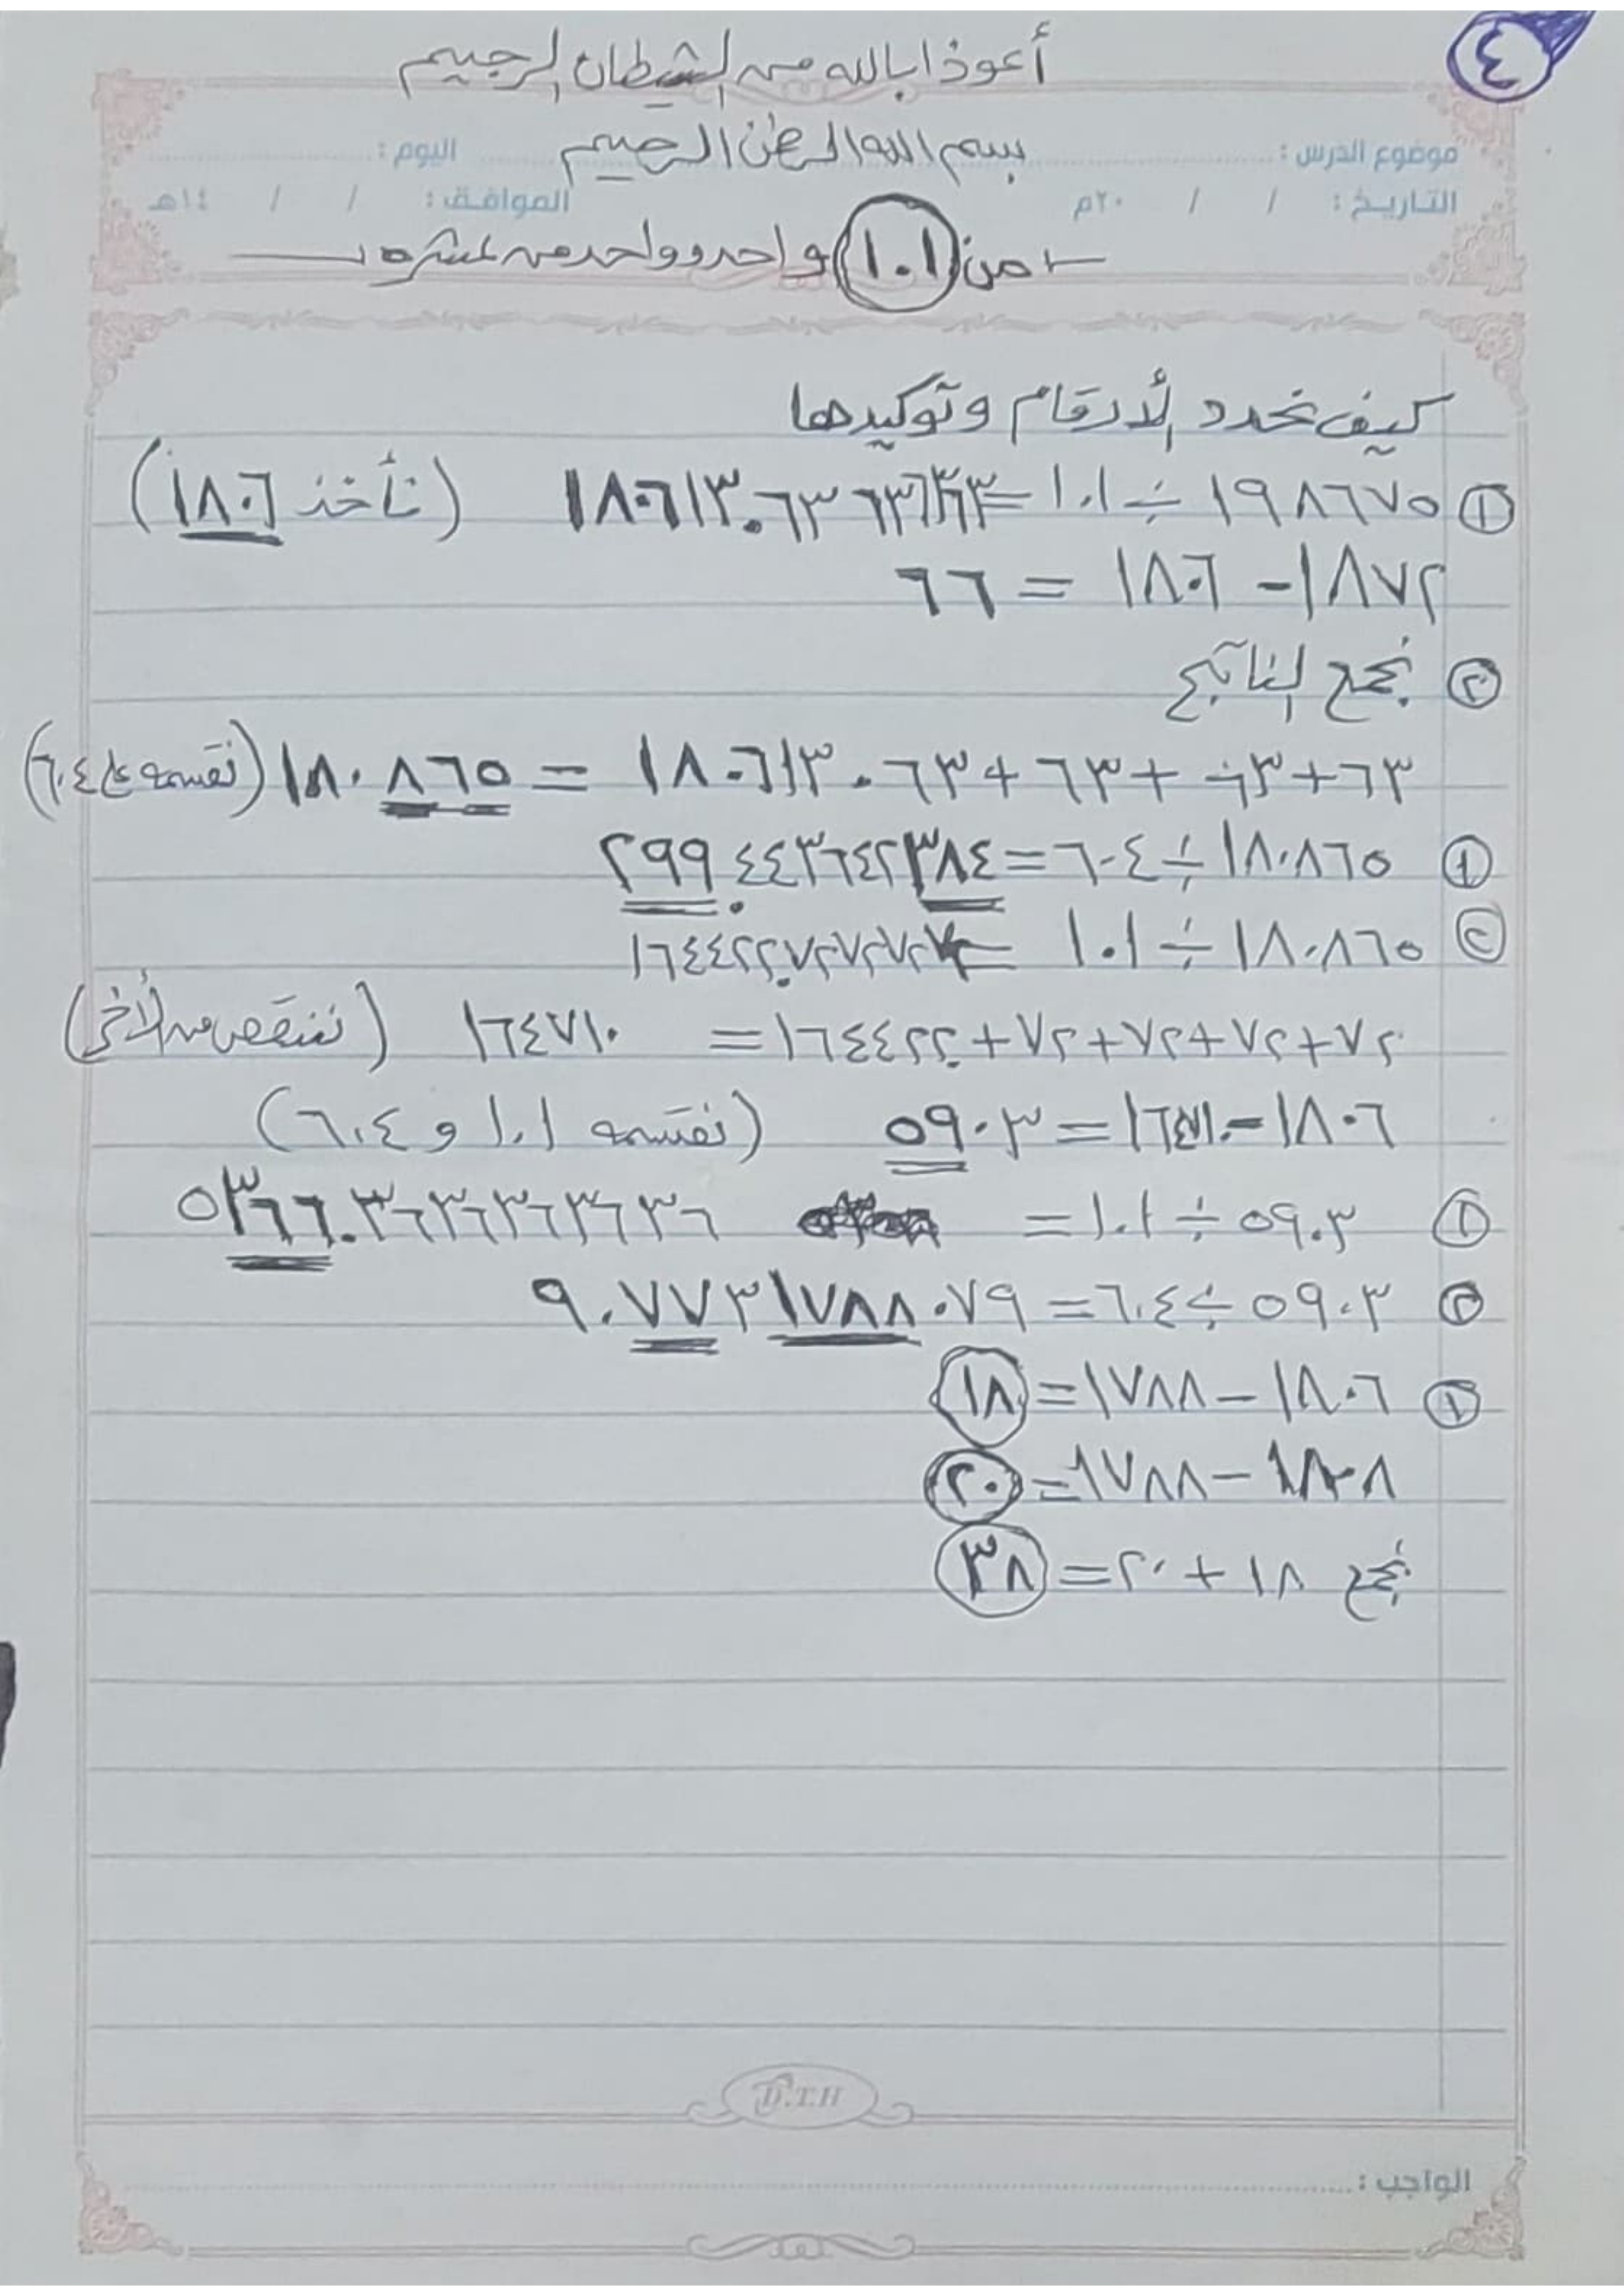 ٤
أعوذ بالله من الشيطان الرجيم
بسم الله الرحمن الرحيم
موضوع الدرس : اليوم :
التاريخ : / / ٢٠م الموافق : / / ١٤هـ
من (١.١) واحد وواحد من عشره
كيف نحدد الأرقام وتوكيدها
① ١٩٨٦٧٥ ÷ ١.١ = ١٨٠٦١٣.٦٣٦٣٦٣٦٣ (نأخذ ١٨٠٦)
١٨٧٢ - ١٨٠٦ = ٦٦
② نجمع الناتج
١٨٠٦١٣.٦٣+٦٣+٦٣+٦٣ = ١٨٠٨٦٥ (نقسمه على ٦.٤)
① ١٨٠٨٦٥ ÷ ٦٠٤ = ٢٩٩.٤٤٣٦٤٢٣٨٤
② ١٨٠٨٦٥ ÷ ١.١ = ١٦٤٤٢٢.٧٢٧٢٧٢٧٢
١٦٤٤٢٢+٧٢+٧٢+٧٢+٧٢ = ١٦٤٧١٠ (ننقص من الأخرى)
١٨٠٦ - ١٦٤٧١٠ = ٥٩٠٣ (نقسمه ١.١ و ٦.٤)
① ٥٩٠٣ ÷ ١.١ = ٥٣٦٦.٣٦٣٦٣٦٣٦٣٦
② ٥٩٠٣ ÷ ٦.٤ = ٩.٧٧٣١٧٨٨٠٧٩
① ١٨٠٦ - ١٧٨٨ = ١٨
١٨٠٨ - ١٧٨٨ = ٢٠
نجمع ١٨ + ٢٠ = ٣٨
D.T.H
الواجب :